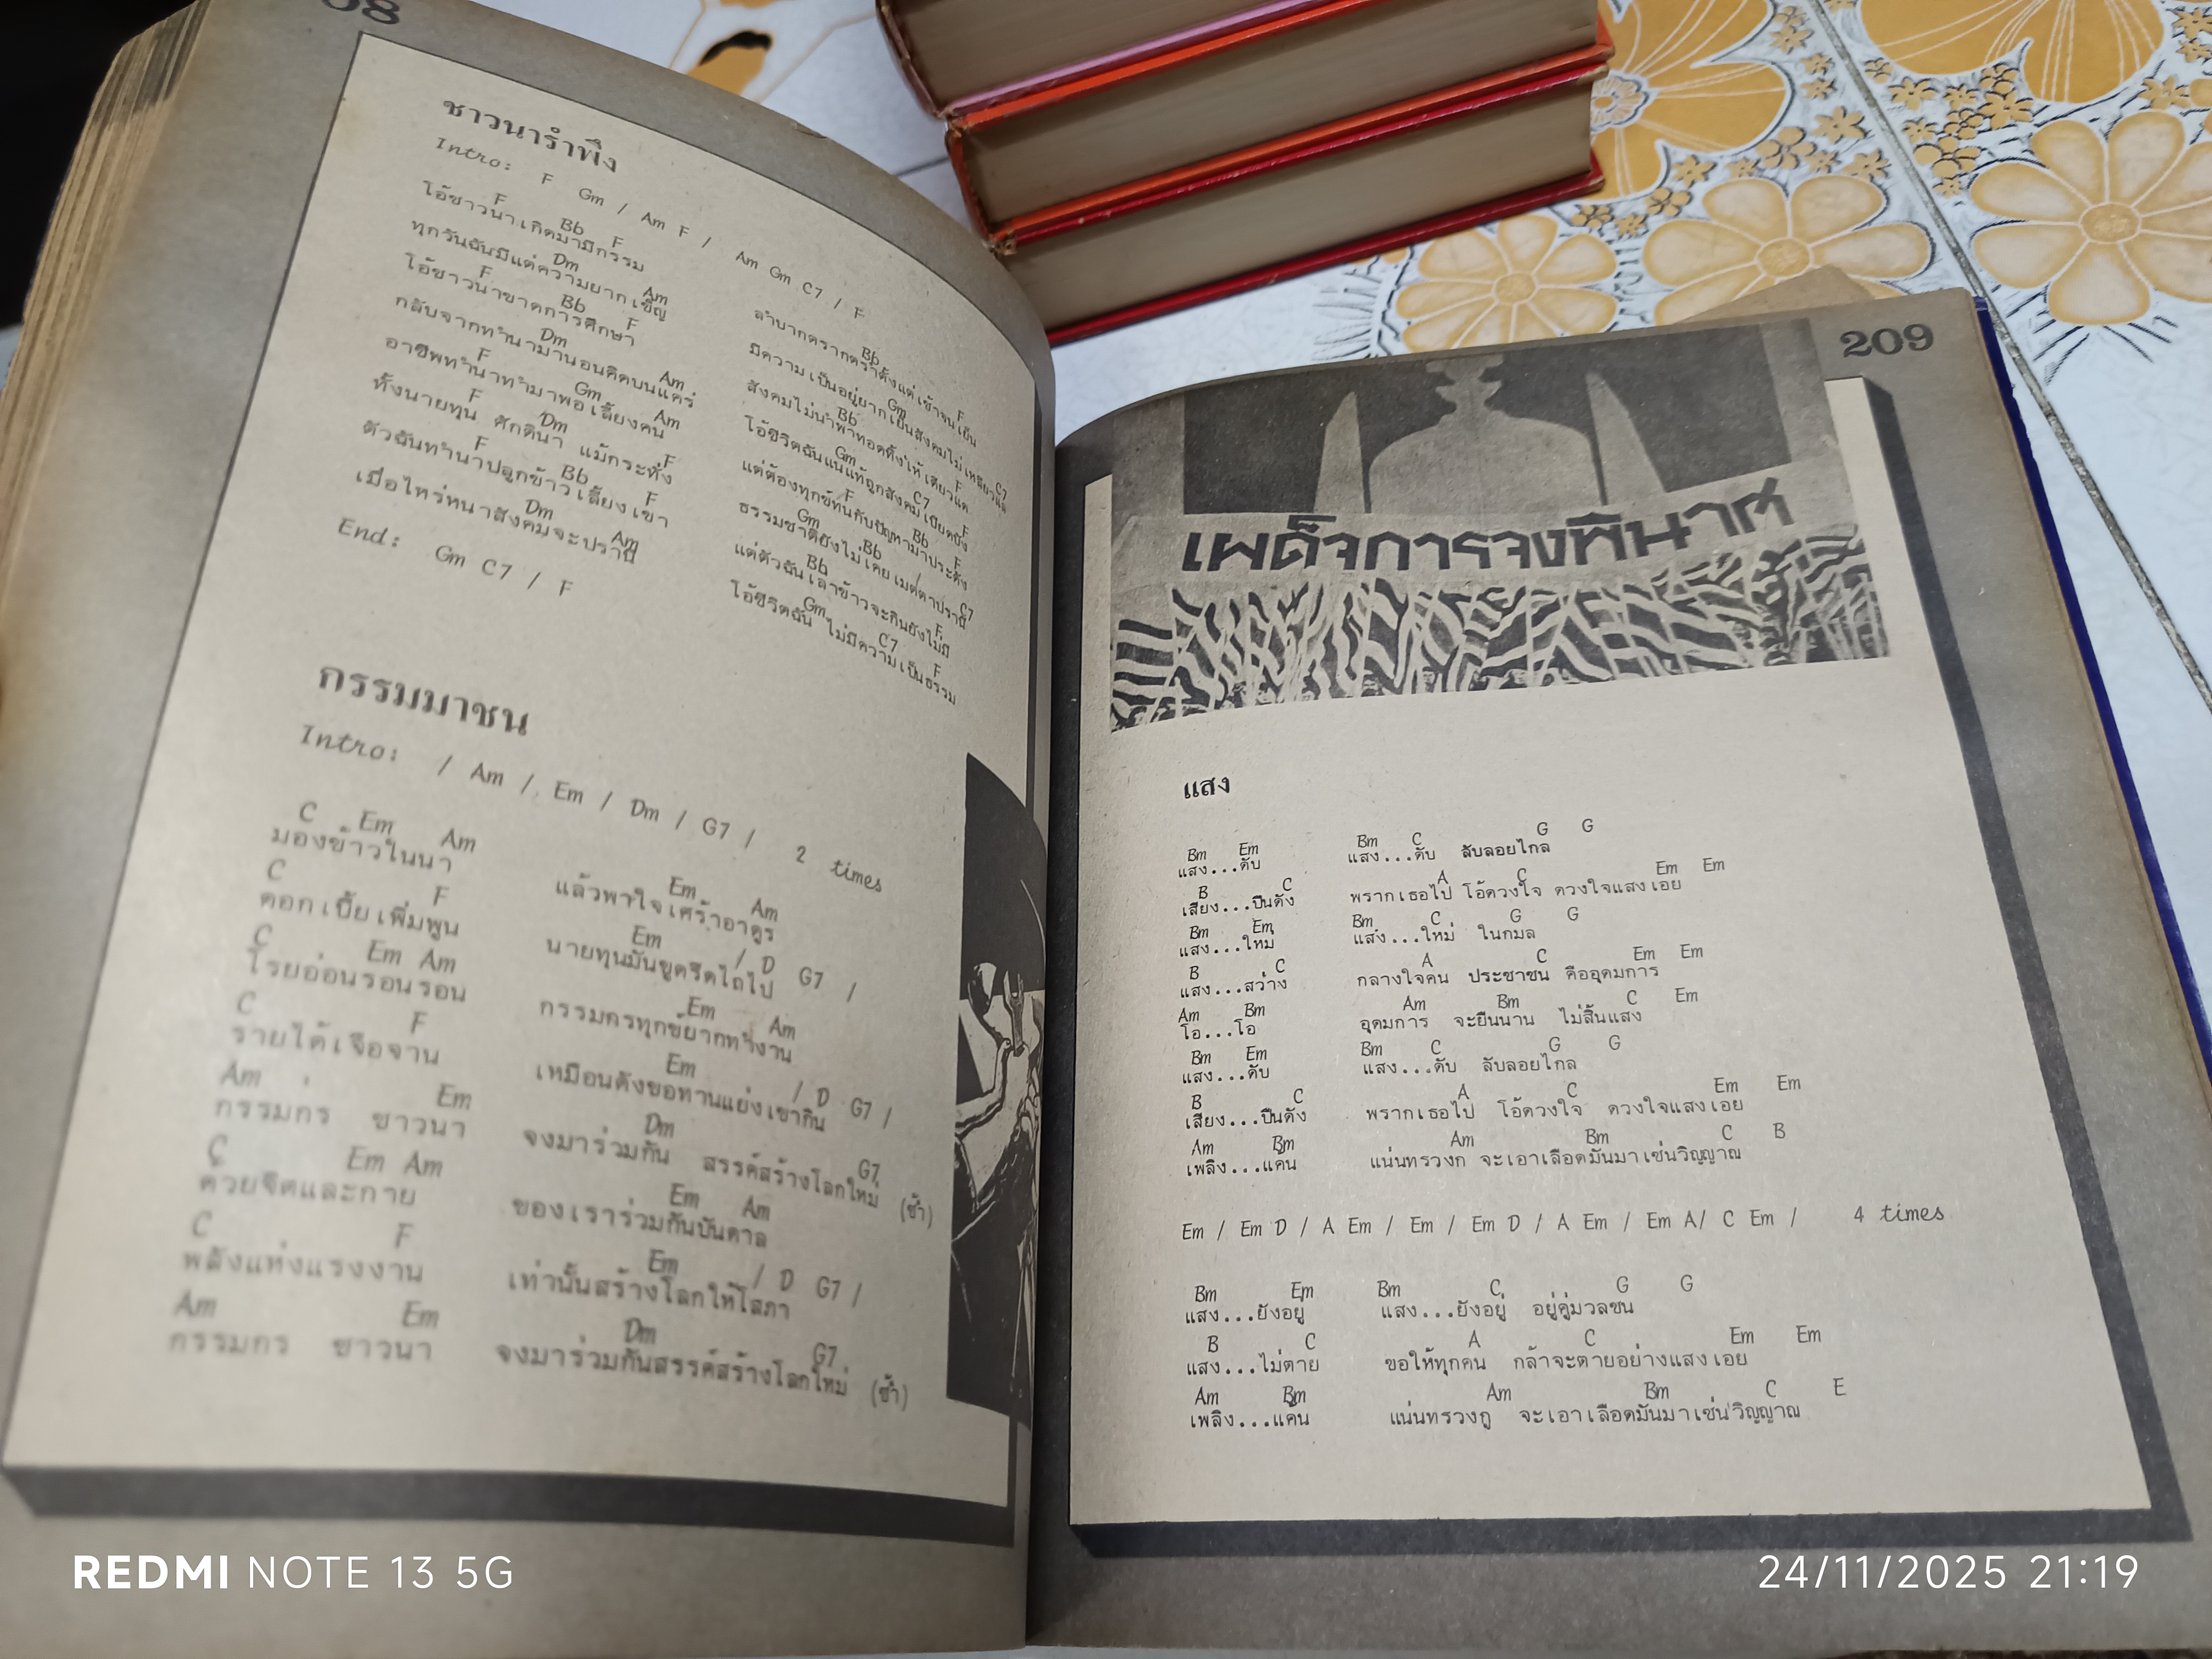 08
ชาวนารำพึง
Intro: F Gm / Am F / Am Gm C7 / F
F Bb F
โอ้ชาวนาเกิดมามีกรรม
Bb F
ลำบากตรากตรำตั้งแต่เช้าจนเย็น
Dm Am
ทุกวันฉันมีแต่ความยากเข็ญ
Gm C7
มีความเป็นอยู่ยากเย็นสังคมไม่เหลียวแล
F Bb F
โอ้ชาวนาขาดการศึกษา
Bb F
สังคมไม่นำพาทอดทิ้งให้เดียวแด
Dm Am
กลับจากทำนามานอนคิดบนแคร่
Gm C7 F
โอ้ชีวิตฉันแน่แท้ถูกสังคมเบียดบัง
F Gm Am
อาชีพทำนาทำมาพอเลี้ยงคน
F Bb F
แต่ต้องทุกข์ทนกับปัญหามาประดัง
F Dm F
ทั้งนายทุน ศักดินา แม้กระทั่ง
Gm Bb C7
ธรรมชาติยังไม่เคยเมตตาปรานี
F Bb F
ตัวฉันทำนาปลูกข้าวเลี้ยงเขา
Bb F
แต่ตัวฉันเล่าข้าวจะกินยังไม่มี
Dm Am
เมื่อไหร่หนาสังคมจะปรานี
Gm C7 F
โอ้ชีวิตฉัน ไม่มีความเป็นธรรม
End: Gm C7 / F
กรรมมาชน
Intro: / Am / Em / Dm / G7 / 2 times
C Em Am
มองข้าวในนา
Em Am
แล้วพาใจเศร้าอาดูร
C F
ดอกเบี้ยเพิ่มพูน
Em / D G7 /
นายทุนมันขูดรีดไถไป
C Em Am
โรยอ่อนรอนรอน
Em Am
กรรมกรทุกข์ยากทำงาน
C F
รายได้เจือจาน
Em / D G7 /
เหมือนดังขอทานแย่งเขากิน
Am Em
กรรมกร ชาวนา
Dm G7
จงมาร่วมกัน สรรค์สร้างโลกใหม่ (ซ้ำ)
C Em Am
ด้วยจิตและกาย
Em Am
ของเราร่วมกันบันดาล
C F
พลังแห่งแรงงาน
Em / D G7 /
เท่านั้นสร้างโลกให้โสภา
Am Em
กรรมกร ชาวนา
Dm G7
จงมาร่วมกันสรรค์สร้างโลกใหม่ (ซ้ำ)
209
เผด็จการจงพินาศ
แสง
Bm Em Bm C G G
แสง...ดับ แสง...ดับ ลับลอยไกล
B C A C Em Em
เสียง...ปืนดัง พรากเธอไป โอ้ดวงใจ ดวงใจแสงเอย
Bm Em Bm C G G
แสง...ใหม่ แสง...ใหม่ ในกมล
B C A C Em Em
แสง...สว่าง กลางใจคน ประชาชน คืออุดมการ
Am Bm Am Bm C Em
โอ...โอ อุดมการ จะยืนนาน ไม่สิ้นแสง
Bm Em Bm C G G
แสง...ดับ แสง...ดับ ลับลอยไกล
B C A C Em Em
เสียง...ปืนดัง พรากเธอไป โอ้ดวงใจ ดวงใจแสงเอย
Am Bm Am Bm C B
เพลิง...แค้น แน่นทรวงก จะเอาเลือดมันมาเซ่นวิญญาณ
Em / Em D / A Em / Em / Em D / A Em / Em A/ C Em / 4 times
Bm Em Bm C G G
แสง...ยังอยู่ แสง...ยังอยู่ อยู่คู่มวลชน
B C A C Em Em
แสง...ไม่ตาย ขอให้ทุกคน กล้าจะตายอย่างแสงเอย
Am Bm Am Bm C E
เพลิง...แค้น แน่นทรวงกู จะเอาเลือดมันมาเซ่นวิญญาณ
REDMI NOTE 13 5G
24/11/2025 21:19